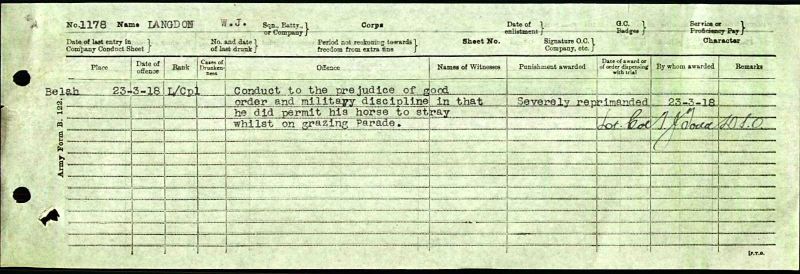 No. 1178 Name LANGDON W.J. Sqn., Batty., or Company} Corps Date of enlistment} G.C. Badges} Service or Proficiency Pay}
Date of last entry in Company Conduct Sheet} No. and date of last drunk} Period not reckoning towards freedom from extra fine Sheet No. Signature O.C. Company, etc.} Character
Place Date of offence Rank Cases of Drunkenness Offence Names of Witnesses Punishment awarded Date of award or of order dispensing with trial By whom awarded Remarks
Belah 23-3-18 L/Cpl Conduct to the prejudice of good
order and military discipline in that Severely reprimanded 23-3-18
he did permit his horse to stray
whilst on grazing Parade. Lt. Col Todd D.S.O
Army Form B. 122.
[P.T.O.